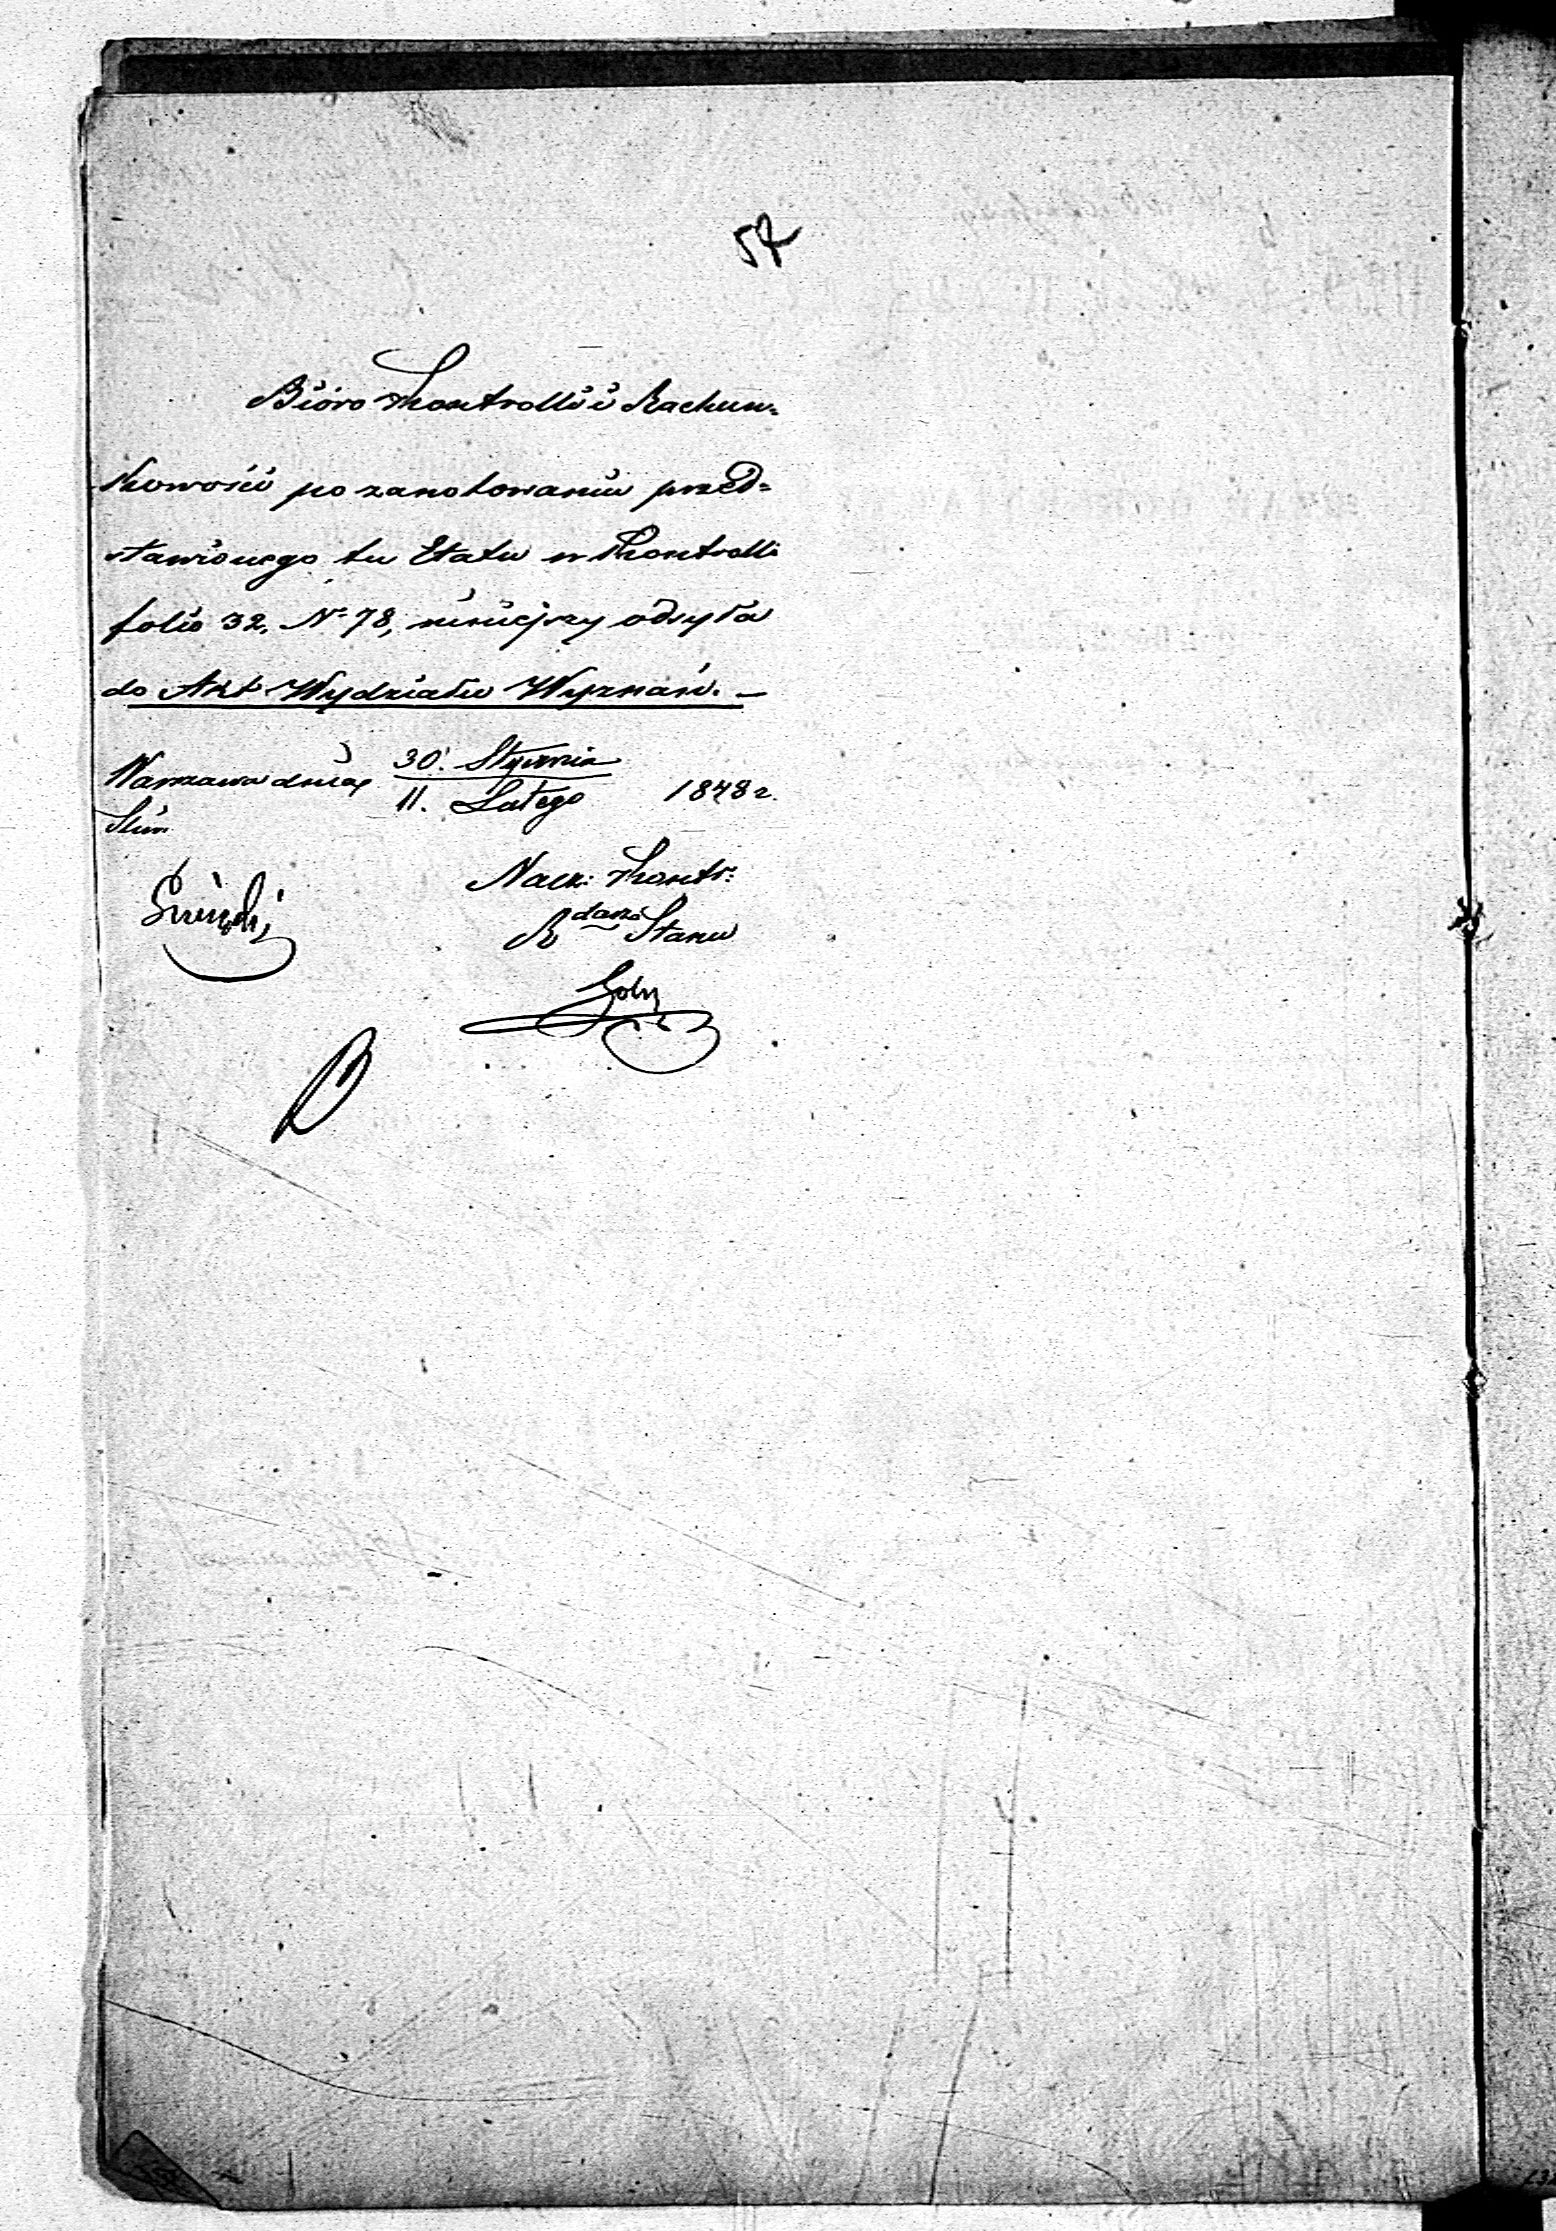 57
Bióro Kontrolli i Rachun=
kowości po zanotowaniu przed=
stawionego tu Etatu w Kontrolli
folio 32. Nº 78, niniejszy odsyła
do Akt Wydziału Wyznań. —
Warszawa dnia 30. Stycznia
11. Lutego 1848 r.
Nacz: Kontr:
R dzca Stanu